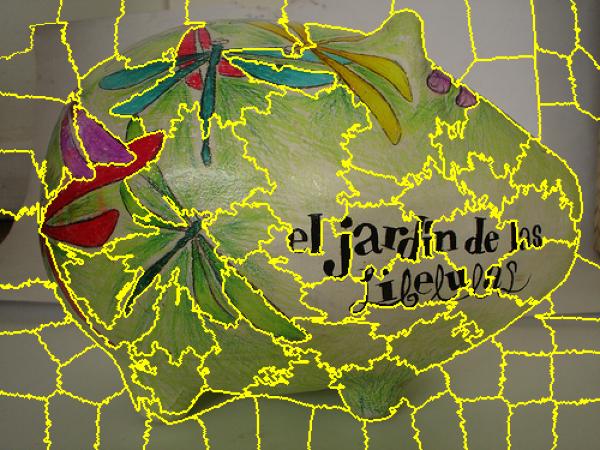 el jardin de las
Libelulas